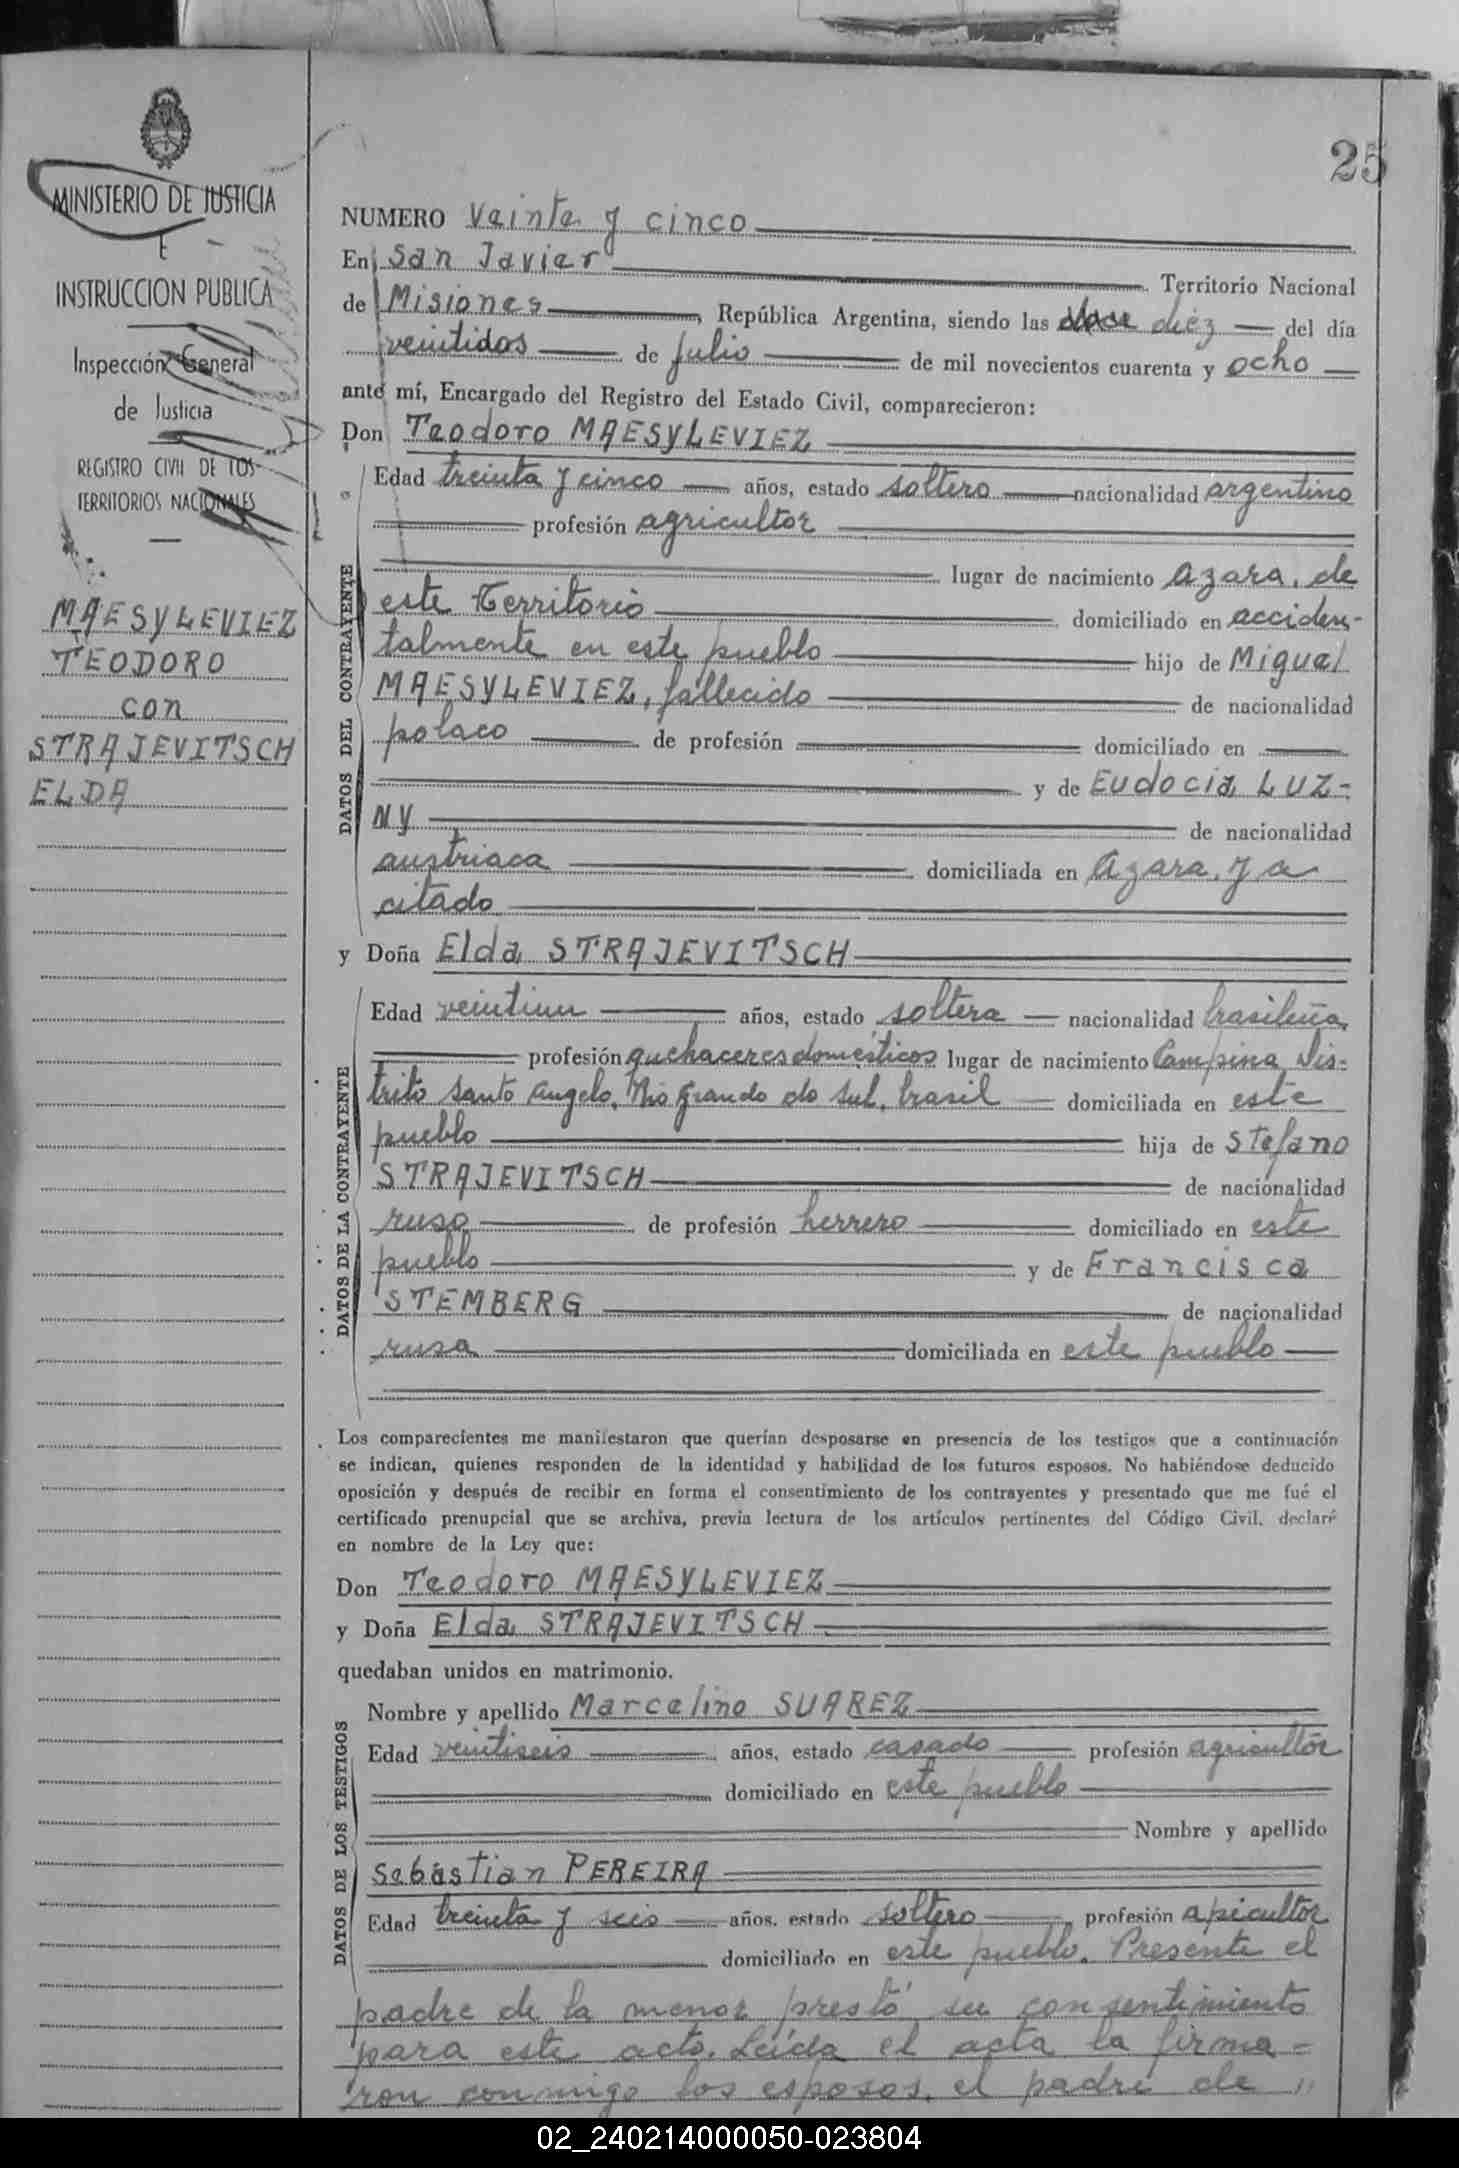 25
MINISTERIO DE JUSTICIA
E
INSTRUCCION PUBLICA
Inspección General
de Justicia
REGISTRO CIVIL DE LOS
TERRITORIOS NACIONALES
MAESYLEVIEZ
TEODORO
con
STRAJEVITSCH
ELDA
NUMERO Veinte y cinco
En San Javier Territorio Nacional
de Misiones, República Argentina, siendo las diéz del día
veintidos de julio de mil novecientos cuarenta y ocho
ante mí, Encargado del Registro del Estado Civil, comparecieron:
Don Teodoro MAESYLEVIEZ
DATOS DEL CONTRAYENTE
Edad treinta y cinco años, estado soltero nacionalidad argentino
profesión agricultor
lugar de nacimiento Azara, de
este Territorio domiciliado en acciden-
talmente en este pueblo hijo de Miguel
MAESYLEVIEZ, fallecido de nacionalidad
polaco de profesión domiciliado en
y de Eudocia LUZ-
NY de nacionalidad
austriaca domiciliada en Azara, ya
citado
y Doña Elda STRAJEVITSCH
DATOS DE LA CONTRAYENTE
Edad veintiun años, estado soltera nacionalidad brasileña,
profesión quehaceres domésticos lugar de nacimiento Campina Dis-
trito Santo Angelo, Rio Grando do Sul, brasil domiciliada en este
pueblo hija de Stefano
STRAJEVITSCH de nacionalidad
ruso de profesión herrero domiciliado en este
pueblo y de Francisca
STEMBERG de nacionalidad
rusa domiciliada en este pueblo
Los comparecientes me manifestaron que querían desposarse en presencia de los testigos que a continuación
se indican, quienes responden de la identidad y habilidad de los futuros esposos. No habiéndose deducido
oposición y después de recibir en forma el consentimiento de los contrayentes y presentado que me fué el
certificado prenupcial que se archiva, previa lectura de los artículos pertinentes del Código Civil, declaré
en nombre de la Ley que:
Don Teodoro MAESYLEVIEZ
y Doña Elda STRAJEVITSCH
quedaban unidos en matrimonio.
DATOS DE LOS TESTIGOS
Nombre y apellido Marcelino SUAREZ
Edad veintiseis años, estado casado profesión agricultor
domiciliado en este pueblo
Nombre y apellido
Sebastian PEREIRA
Edad treinta y seis años, estado soltero, profesión apicultor
domiciliado en este pueblo. Presente el
padre de la menor prestó su consentimiento
para este acto. Leída el acta la firma-
ron conmigo los esposos, el padre de "
02_240214000050-023804